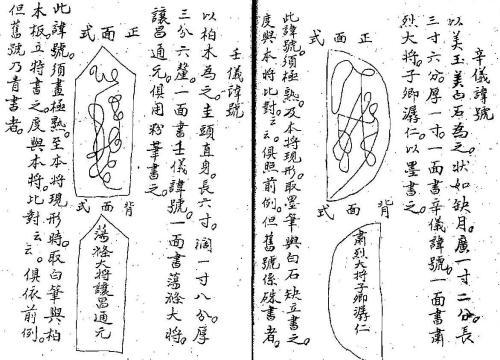 辛儀諱號
以美玉美白石為之。狀如缺月。廣一寸二分。長
三寸六分。厚一寸。一面書辛儀諱號。一面書肅
烈大將子卿潺仁。以墨書之。
正面式
背面式
肅烈大將子卿潺仁
此諱號須畫極熟。及本將現形。取墨筆與白石缺立書之。
度與本將比對云云。俱照前例。但舊號係硃書者。
壬儀諱號
以柏木為之。圭頭直身。長六寸。濶一寸八分。厚
三分六釐。一面書壬儀諱號。一面書蕩滌大將
讓昌通元。俱用粉筆書之。
正面式
背面式
蕩滌大將讓昌通元
此諱號須畫極熟。至本將現形時。取白筆與柏
木板立將書之。度與本將比對云云。俱依前例。
但舊號乃青書者。